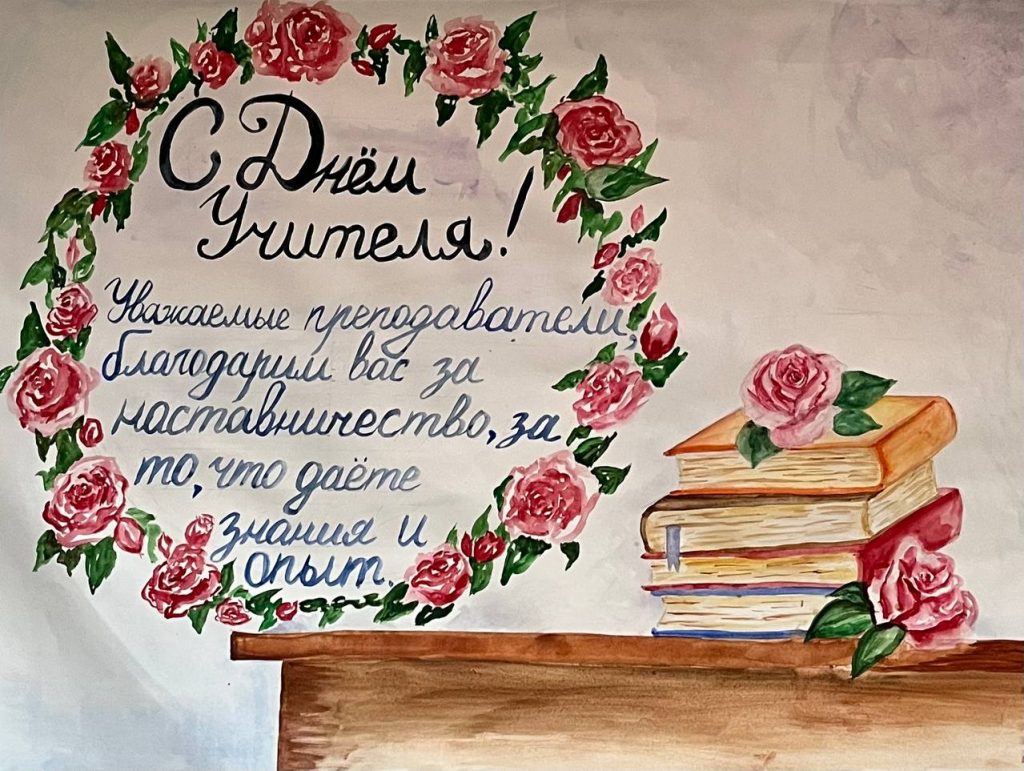 С Днём
Учителя!
Уважаемые преподаватели,
благодарим вас за
наставничество, за
то, что даёте
знания и
опыт.